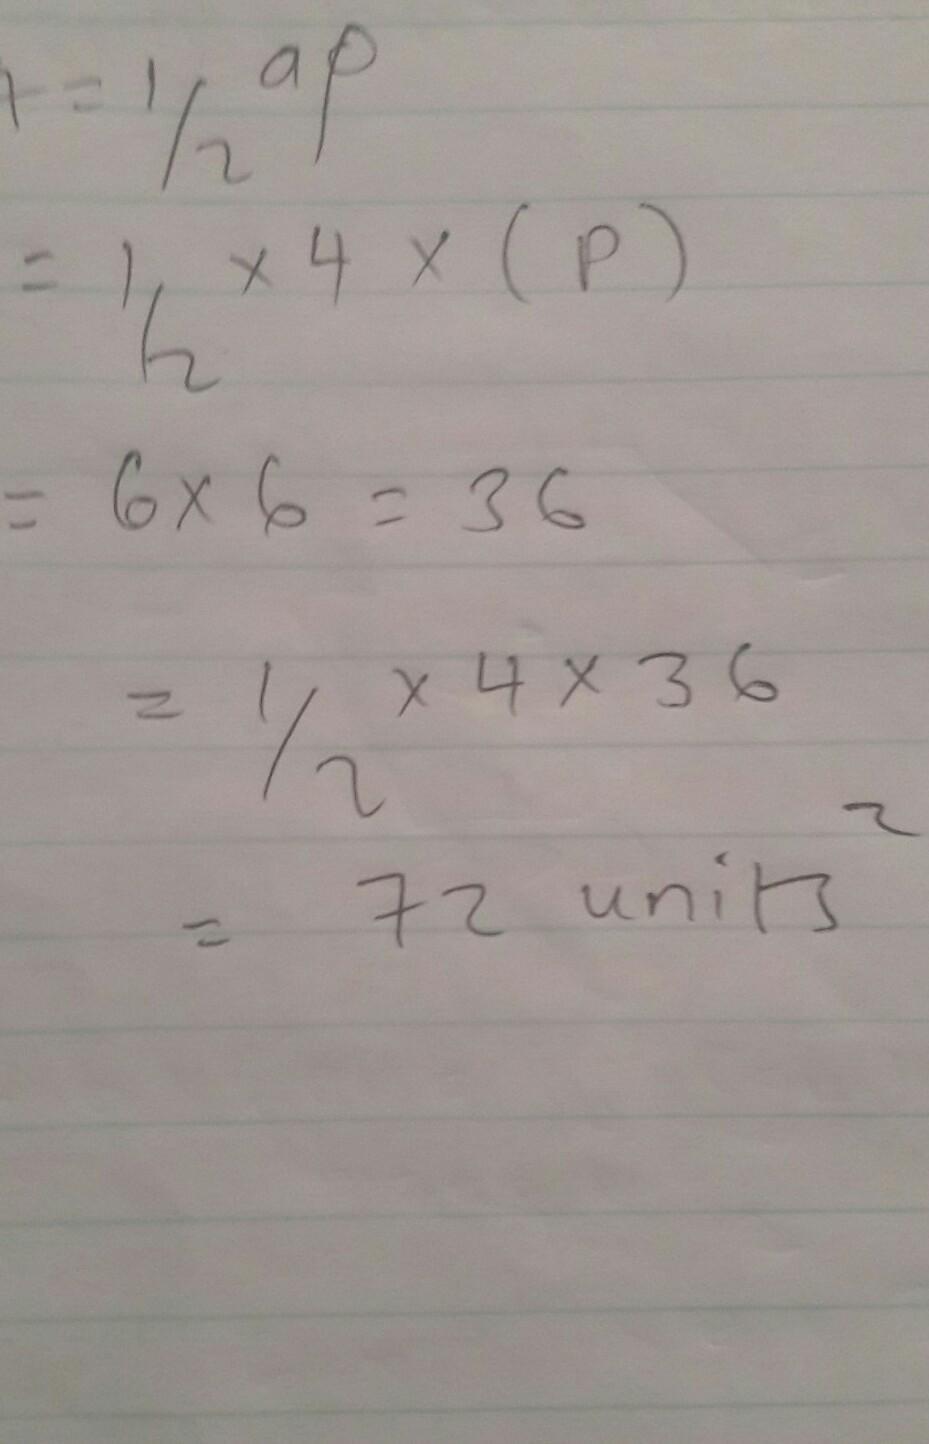 = 1/2 ap
= 1/2 × 4 × (P)
= 6 × 6 = 36
= 1/2 × 4 × 36
= 72 units²